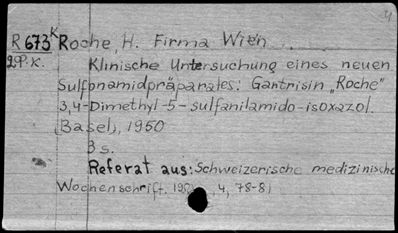 R 673K Roche, H. Firma Wien
2P.K. Klinische Untersuchung eines neuen
Sulfonamidpräparates: Gantrisin „Roche"
3,4-Dimethyl-5-sulfanilamido-isoxazol.
(Basel), 1950
3 s.
Referat aus: Schweizerische medizinische
Wochenschrift. 1950, 4, 78-81